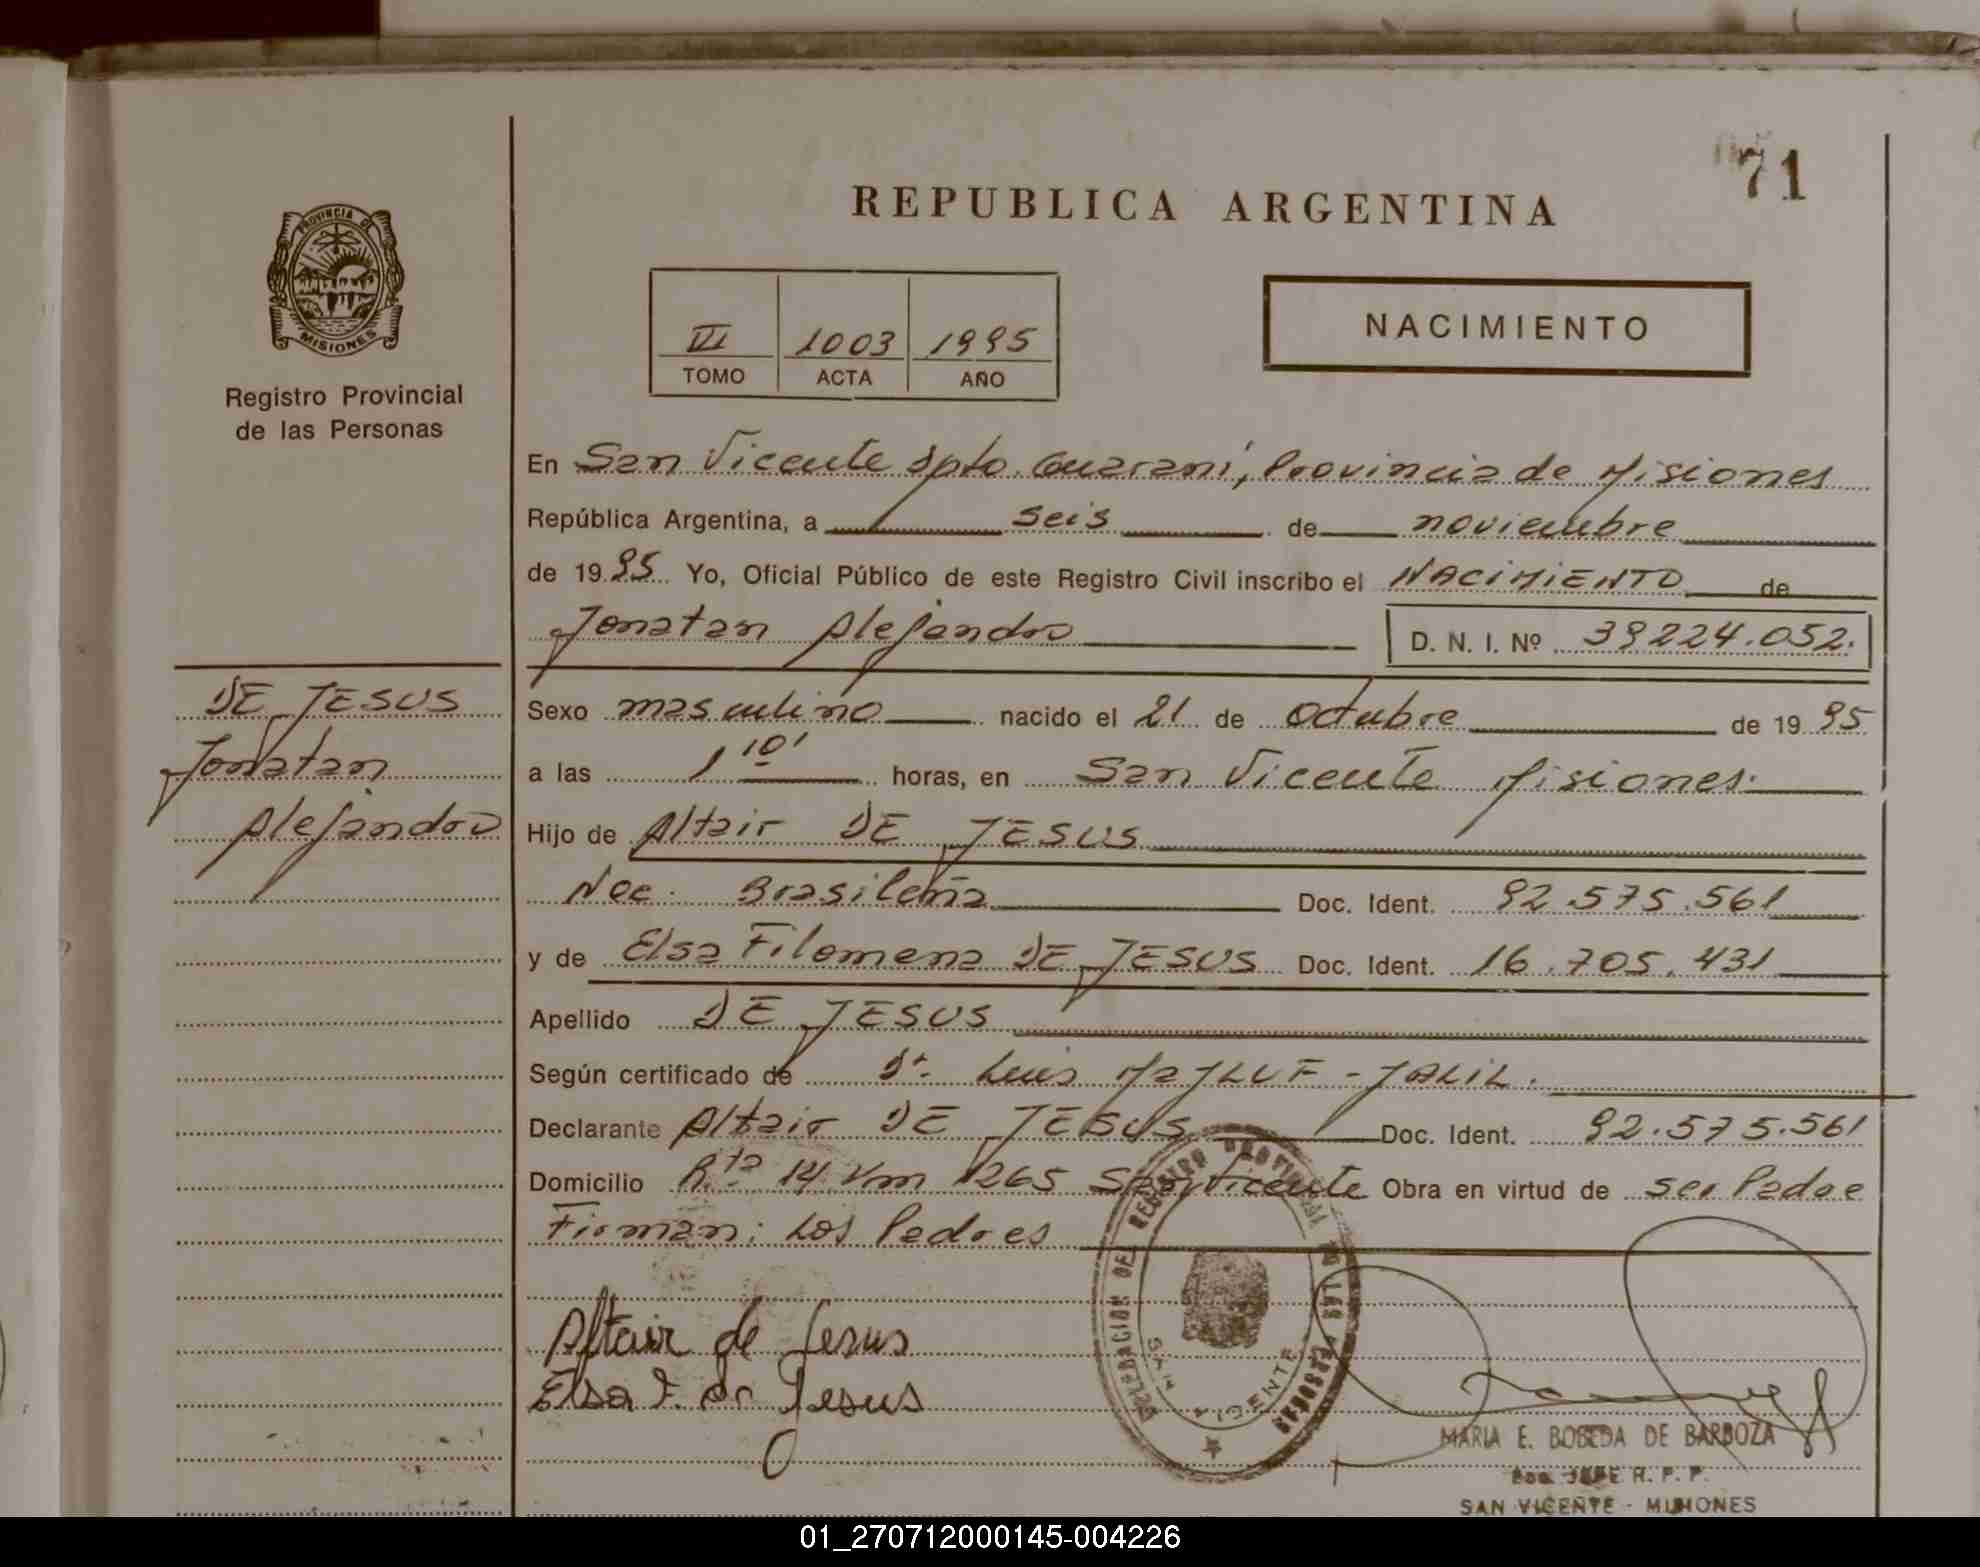 71
REPUBLICA ARGENTINA
PROVINCIA DE
MISIONES
Registro Provincial
de las Personas
VI 1003 1995
TOMO ACTA AÑO
NACIMIENTO
En San Vicente Dpto. Guaraní, Provincia de Misiones
República Argentina, a seis de noviembre
de 1995 Yo, Oficial Público de este Registro Civil inscribo el NACIMIENTO de
Jonatan Alejandro D. N. I. Nº 39224.052.
DE JESUS
Jonatan
Alejandro
Sexo masculino nacido el 21 de octubre de 1995
a las 1 10' horas, en San Vicente Misiones.
Hijo de Altair DE JESUS
Nac. Brasileña Doc. Ident. 92.575.561
y de Elsa Filomena DE JESUS Doc. Ident. 16.705.431
Apellido DE JESUS
Según certificado de Dr. Luis MAJLUF - JALIL.
Declarante Altair DE JESUS Doc. Ident. 92.575.561
Domicilio Rta 14 Km 1265 San Vicente Obra en virtud de ser Padre
Firman: Los Padres
Altair de Jesus
Elsa F. de Jesus
DELEGACION DEL REGISTRO PROVINCIAL DE LAS PERSONAS
SAN VICENTE
MARIA E. BOBEDA DE BARBOZA
JEFE R. P. P.
SAN VICENTE - MISIONES
01_270712000145-004226